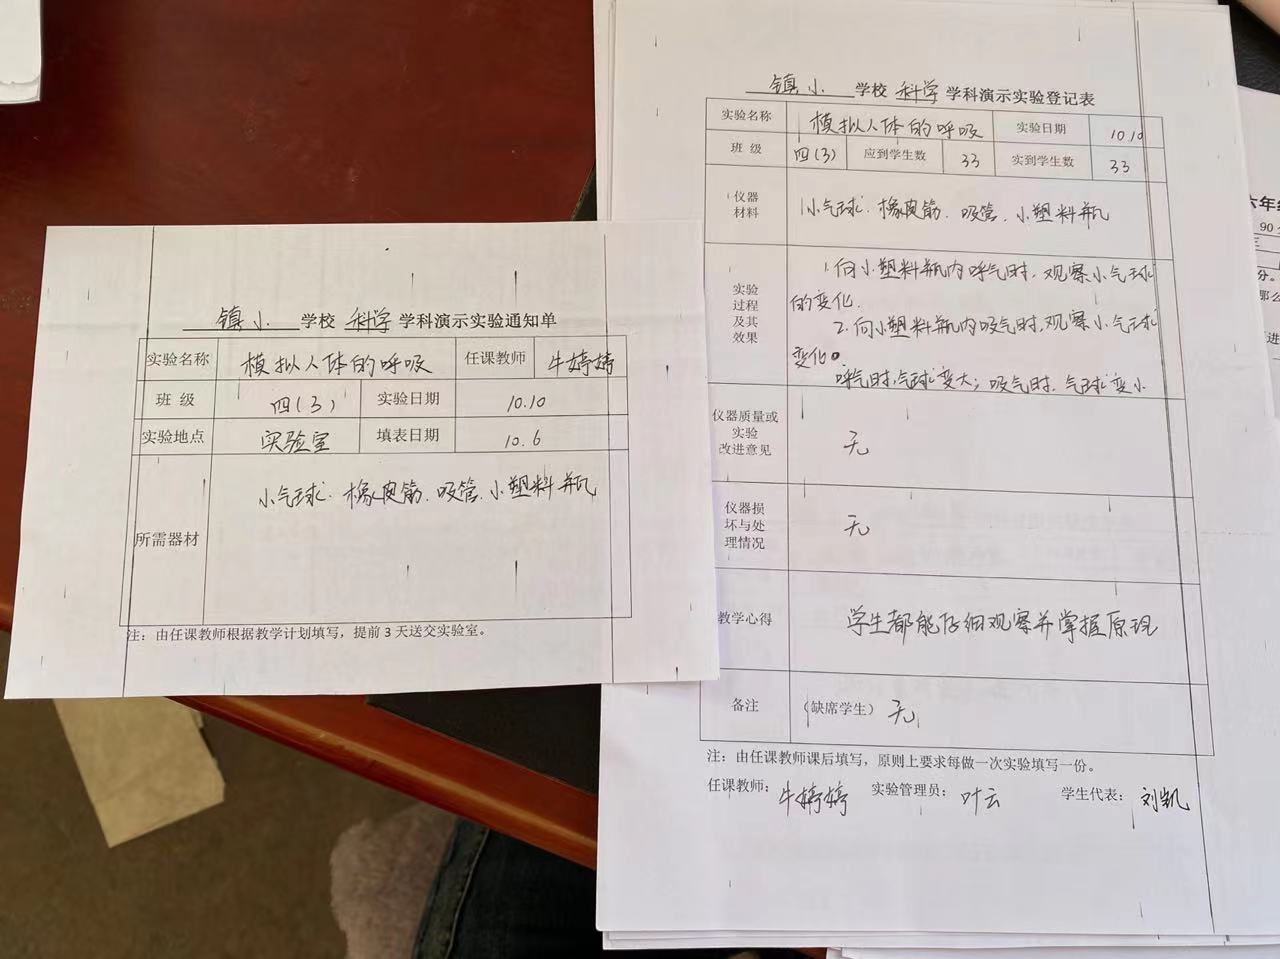 镇小 学校 科学 学科演示实验通知单
实验名称 模拟人体的呼吸 任课教师 牛婷婷
班 级 四(3) 实验日期 10.10
实验地点 实验室 填表日期 10.6
所需器材 小气球. 橡皮筋. 吸管. 小塑料瓶
注：由任课教师根据教学计划填写，提前3天送交实验室。
镇小 学校 科学 学科演示实验登记表
实验名称 模拟人体的呼吸 实验日期 10.10
班 级 四(3) 应到学生数 33 实到学生数 33
仪器
材料
小气球. 橡皮筋. 吸管. 小塑料瓶
实验
过程
及其
效果
1.向小塑料瓶内呼气时, 观察小气球
的变化.
2.向小塑料瓶内吸气时,观察小气球
变化。
呼气时,气球变大; 吸气时, 气球变小
仪器质量或
实验
改进意见
无
仪器损
坏与处
理情况
无
教学心得 学生都能仔细观察并掌握原理
备注 （缺席学生） 无
注：由任课教师课后填写，原则上要求每做一次实验填写一份。
任课教师： 牛婷婷 实验管理员： 叶云 学生代表： 刘凯
六年级
90分